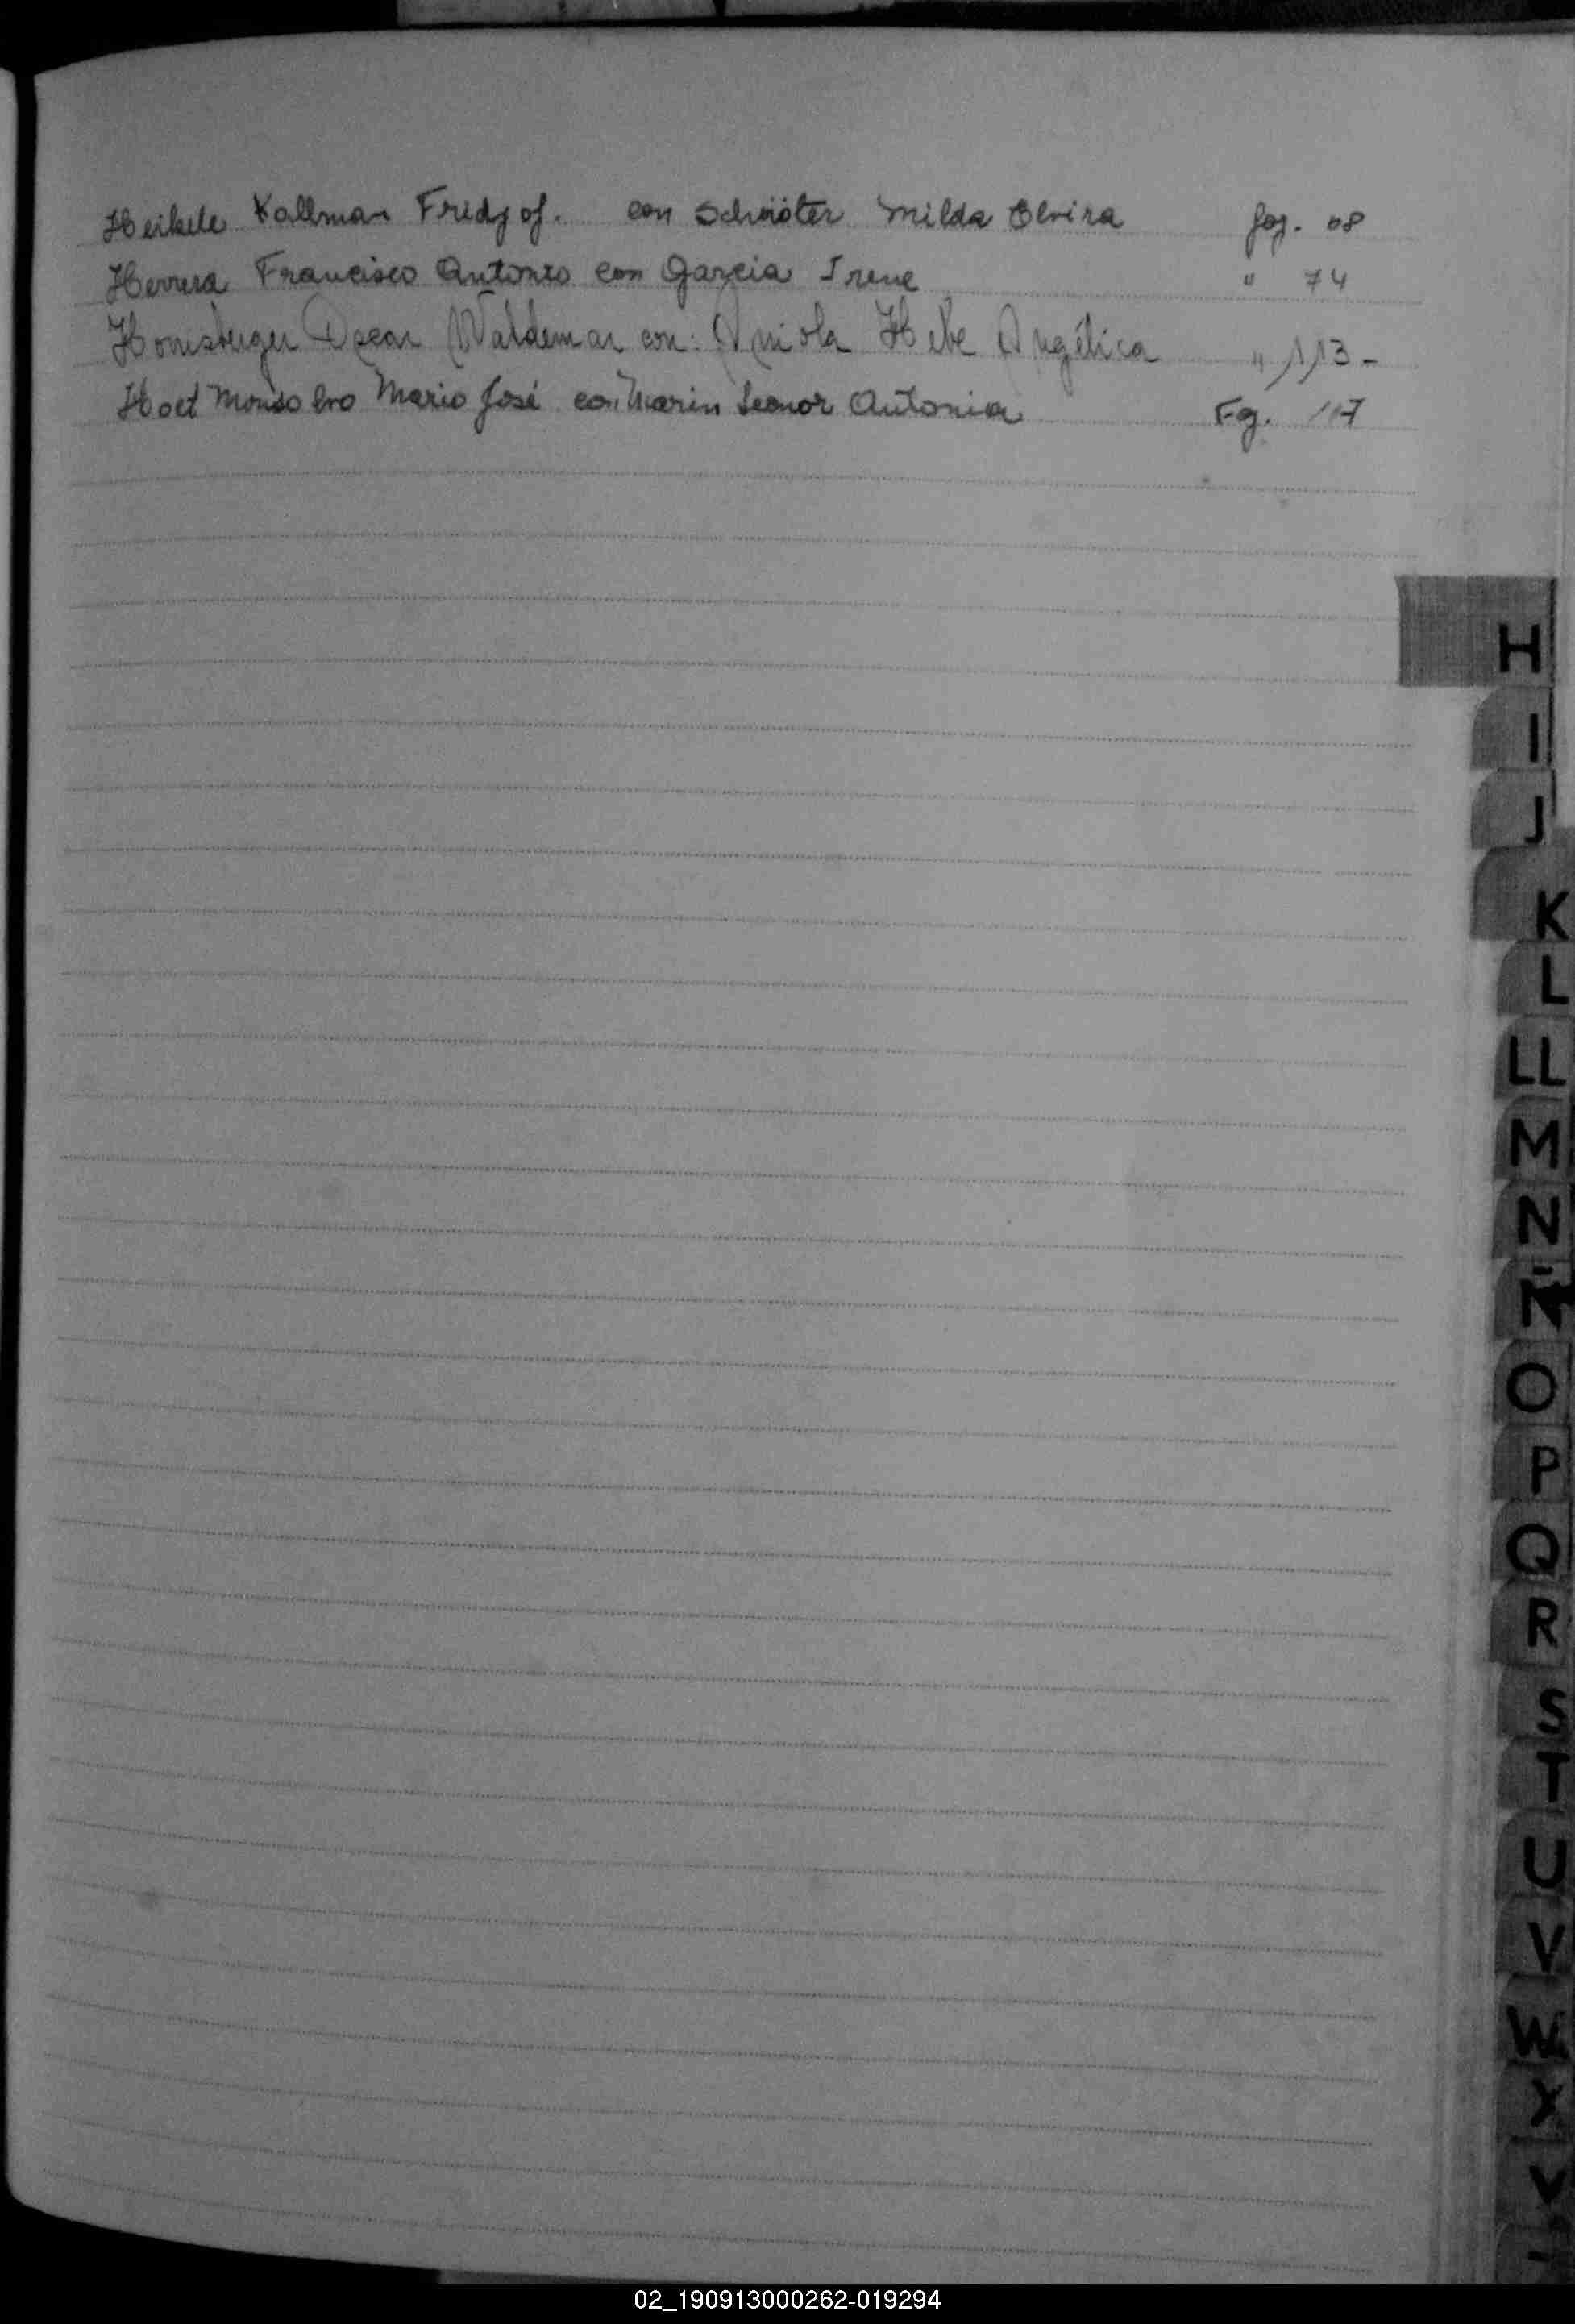 Heikele Kallman Fridjof. con Schröter Milda Elvira foj. 68
Herrera Francisco Antonio con Garcia Irene " 74
Oscar Waldemar con: Hebe Angélica " 113-
Hoet Mario José con Marin Leonor Antonia Fg. 117
H
I
J
K
L
LL
M
N
Ñ
O
P
Q
R
S
T
U
V
W
X
Y
02_190913000262-019294